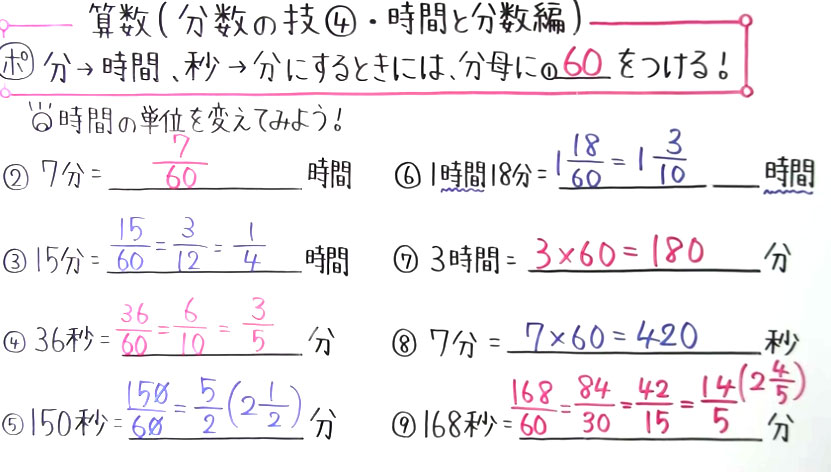 算数(分数の技④・時間と分数編)
ポ 分→時間、秒→分にするときには、分母に①60をつける!
時間の単位を変えてみよう!
② 7分= 7/60 時間
③ 15分= 15/60 = 3/12 = 1/4 時間
④ 36秒= 36/60 = 6/10 = 3/5 分
⑤ 150秒= 150/60 = 5/2 (2 1/2) 分
⑥ 1時間18分= 1 18/60 = 1 3/10 時間
⑦ 3時間= 3×60=180 分
⑧ 7分= 7×60=420 秒
⑨ 168秒= 168/60 = 84/30 = 42/15 = 14/5 (2 4/5) 分